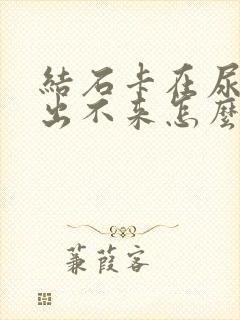 結石卡在尿
出不来怎麼
蒹葭客